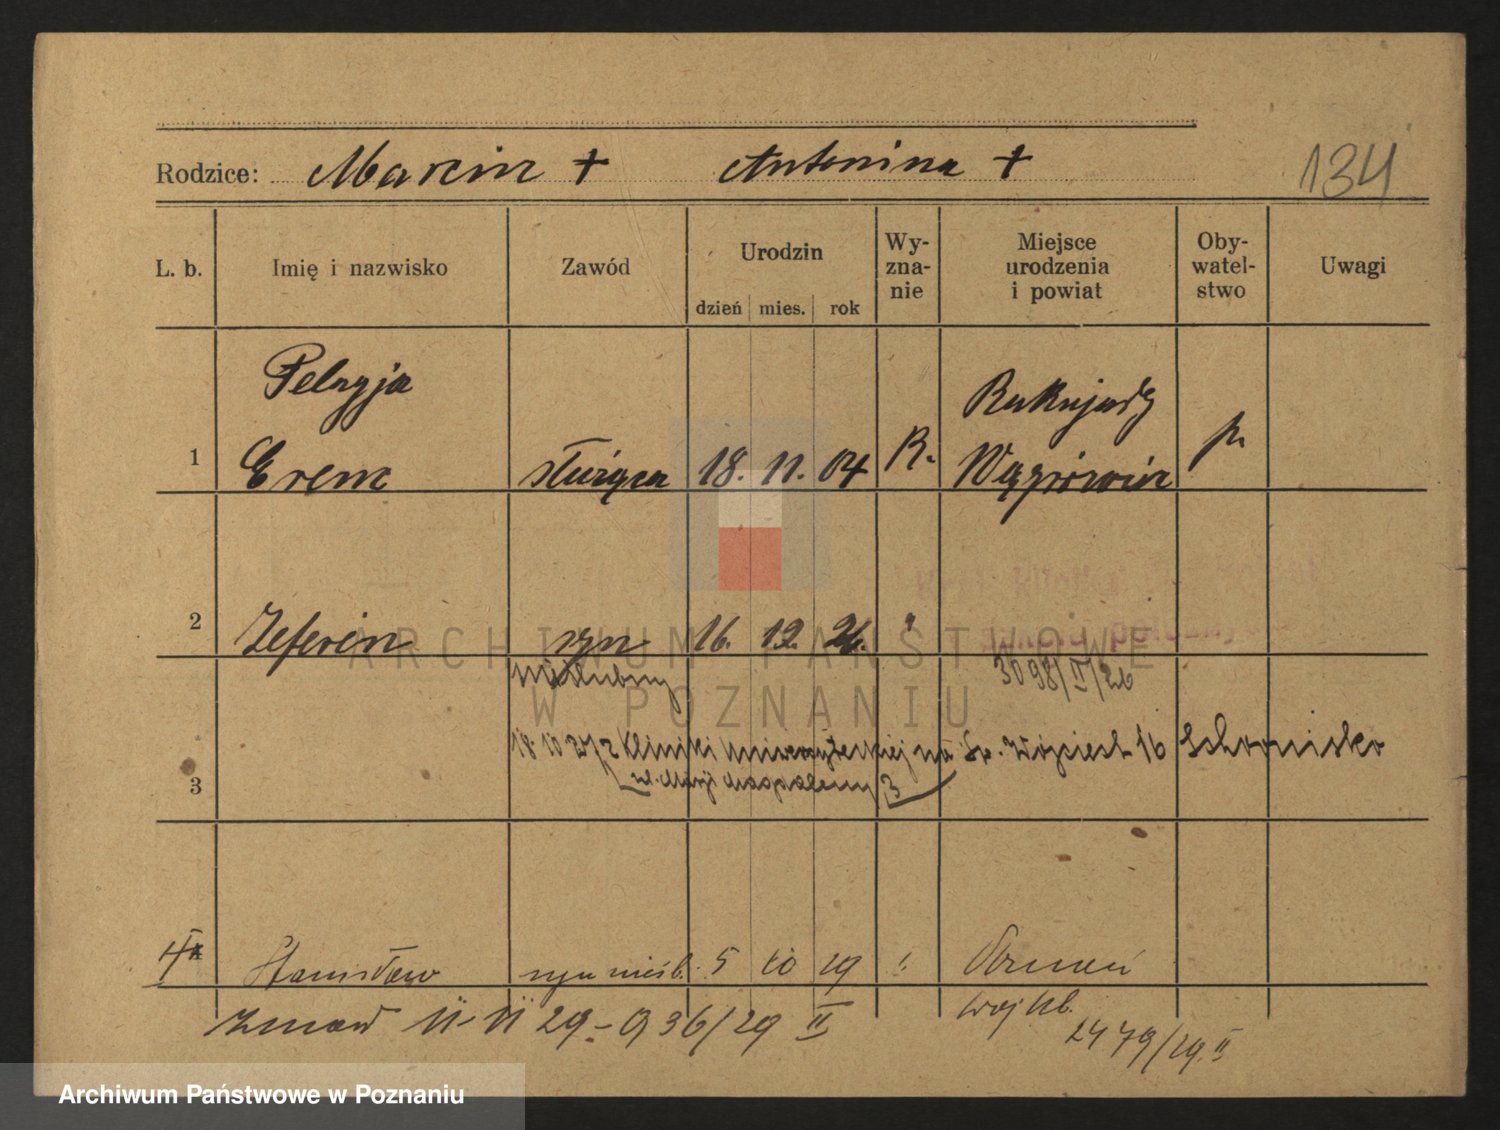 Rodzice: Marcin + Antonina + 134
L. b. Imię i nazwisko Zawód Urodzin dzień mies. rok Wy-zna-nie Miejsce urodzenia i powiat Oby-watel-stwo Uwagi
Pelagja
1 Erenc służąca 18. 11. 04 R. Wągrówiec p.
2 Zeferin syn 16. 12. 26. "
nieślubny 3098/II/26
18 10 27 z Kliniki Uniwersyteckiej na Św. Wojciech 16 Schronisko
3 ul. Marji Magdaleny 3
4 Stanisław syn nieśl. 5 10 29 " Poznań
Zmarł 11-11 29 - 936/29 II woj kb.
2479/29 II
ARCHIWUM PAŃSTWOWE
W POZNANIU
Archiwum Państwowe w Poznaniu